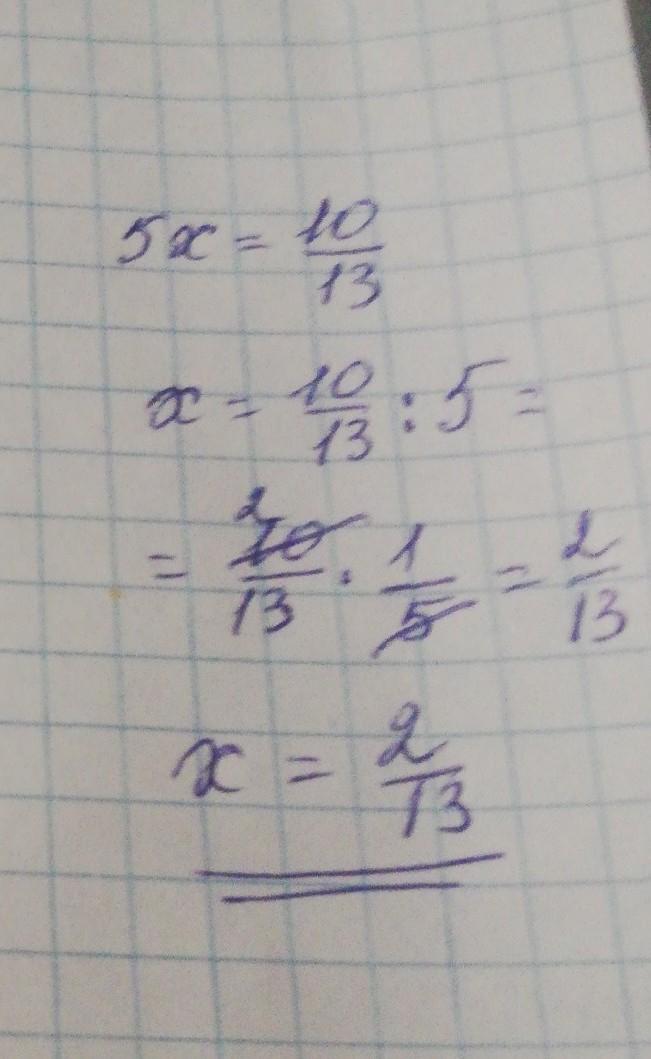 5x = 10/13
x = 10/13 : 5 =
= 2 10/13 · 1/5 = 2/13
x = 2/13